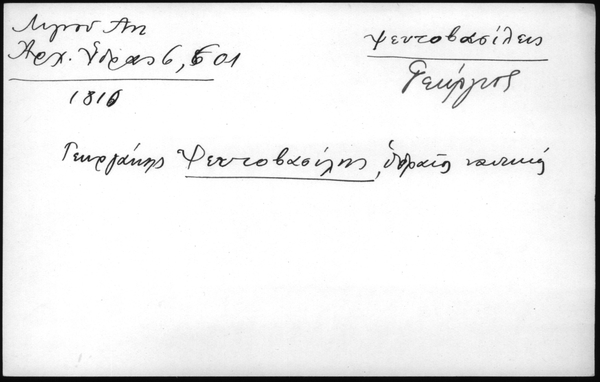 Λιγνού Αντ
Αρχ. Ύδρας 6, 501
1818
Ψευτοβασίλεις
Γεώργιος
Γεωργάκης Ψευτοβασίλης, υδραίος ναυτικός